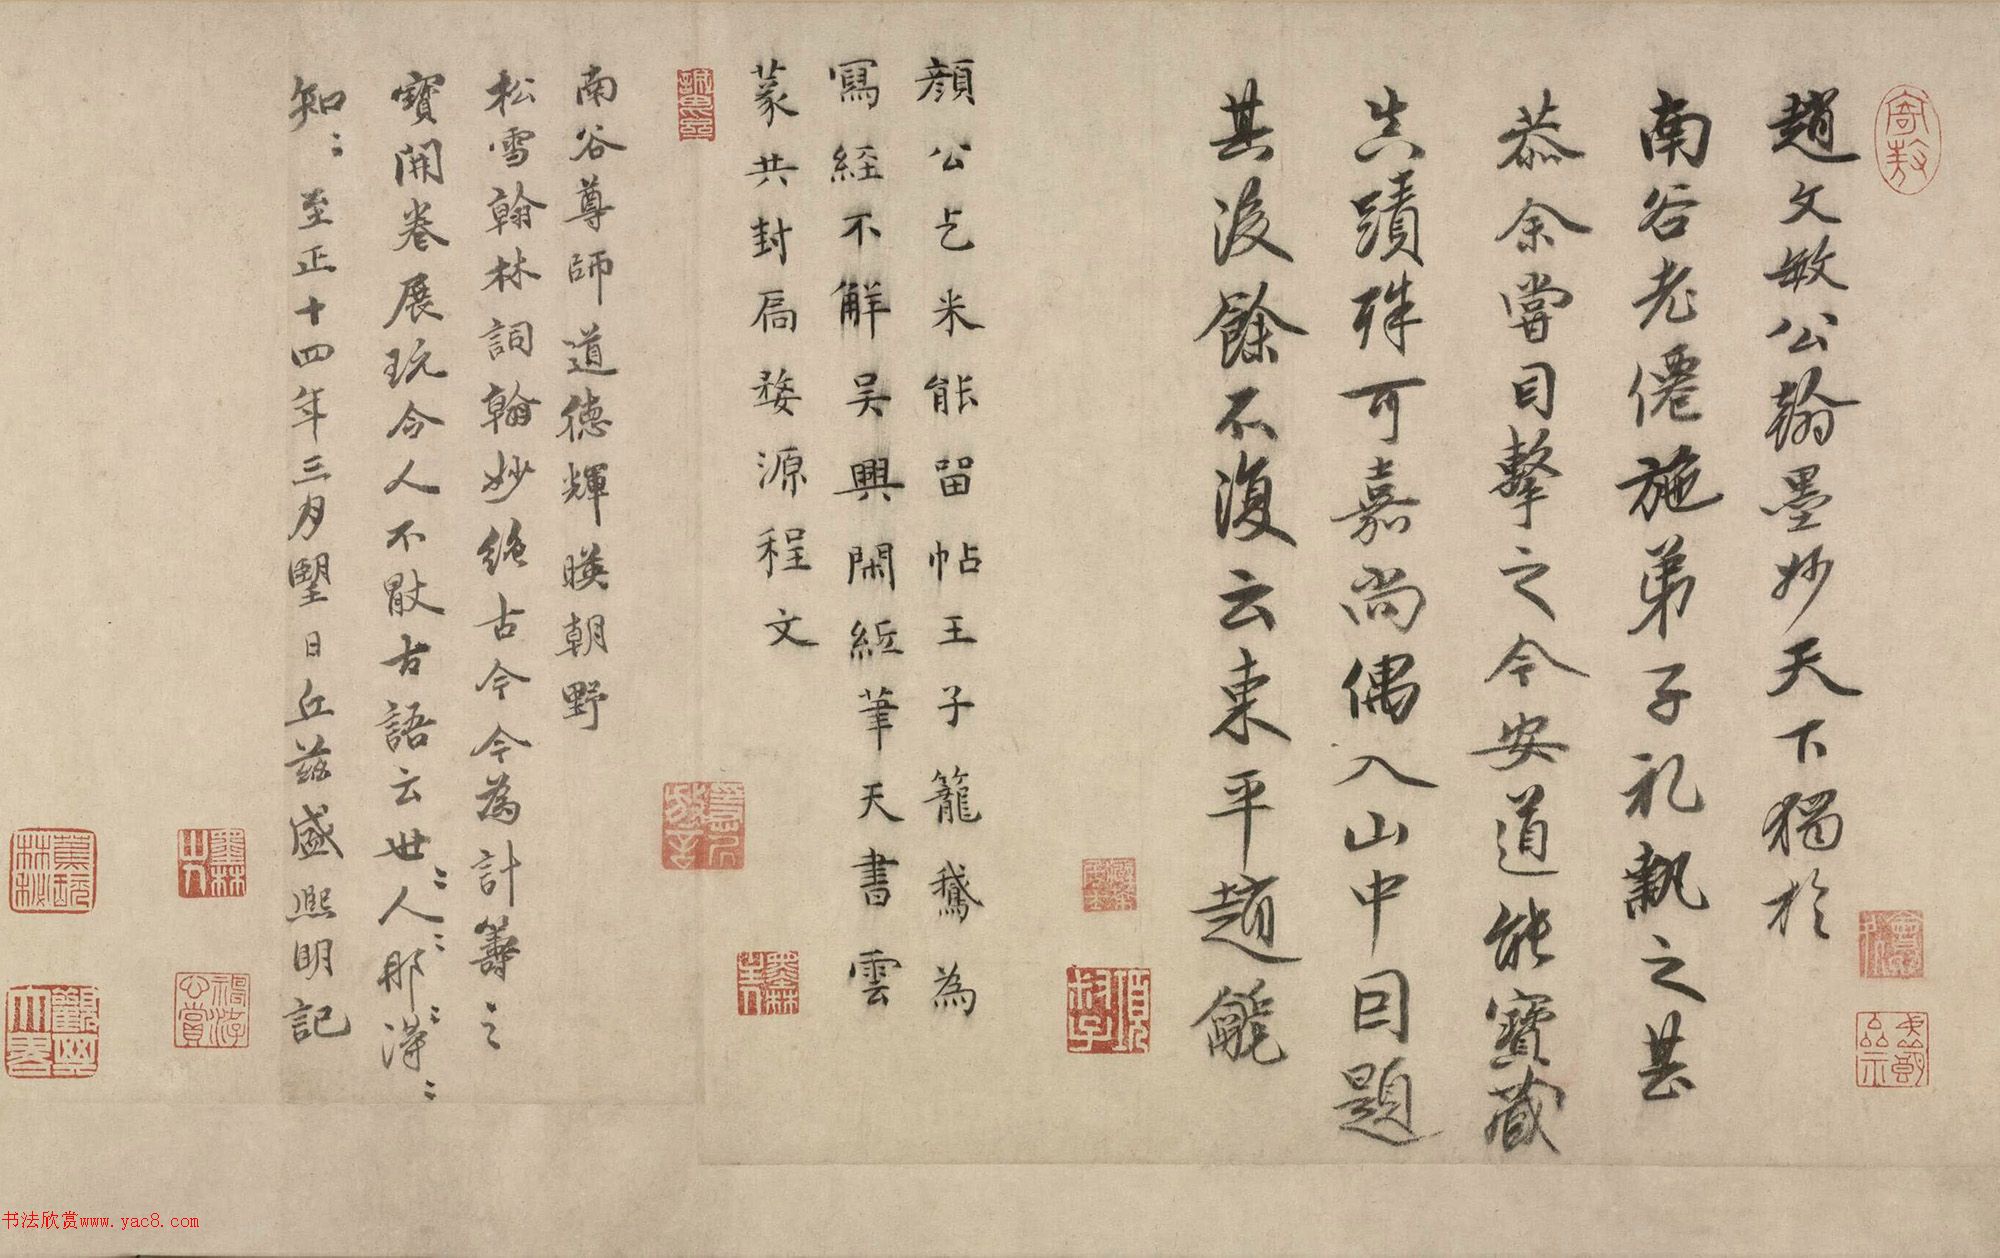 趙文敏公翰墨妙天下獨於
南谷老僊施弟子礼執之甚
恭余嘗目擊之今安道能寶藏
真蹟殊可嘉尚偶入山中因題
其後餘不復云東平趙
顏公乞米能留帖王子籠鵝為
寫經不解吳興閑紙筆天書雲
篆共封扃婺源程文
南谷尊師道德輝暎朝野
松雪翰林詞翰妙絕古今今為計籌之
寶開卷展玩令人不厭古語云世〻人〻那〻得〻
知〻至正十四年三月望日丘茲盛熙明記
項叔子
书法欣赏www.yac8.com